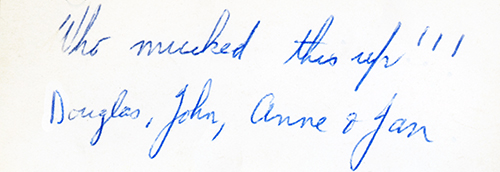 "Who mucked this up"!!!
Douglas, John, Anne & Jan